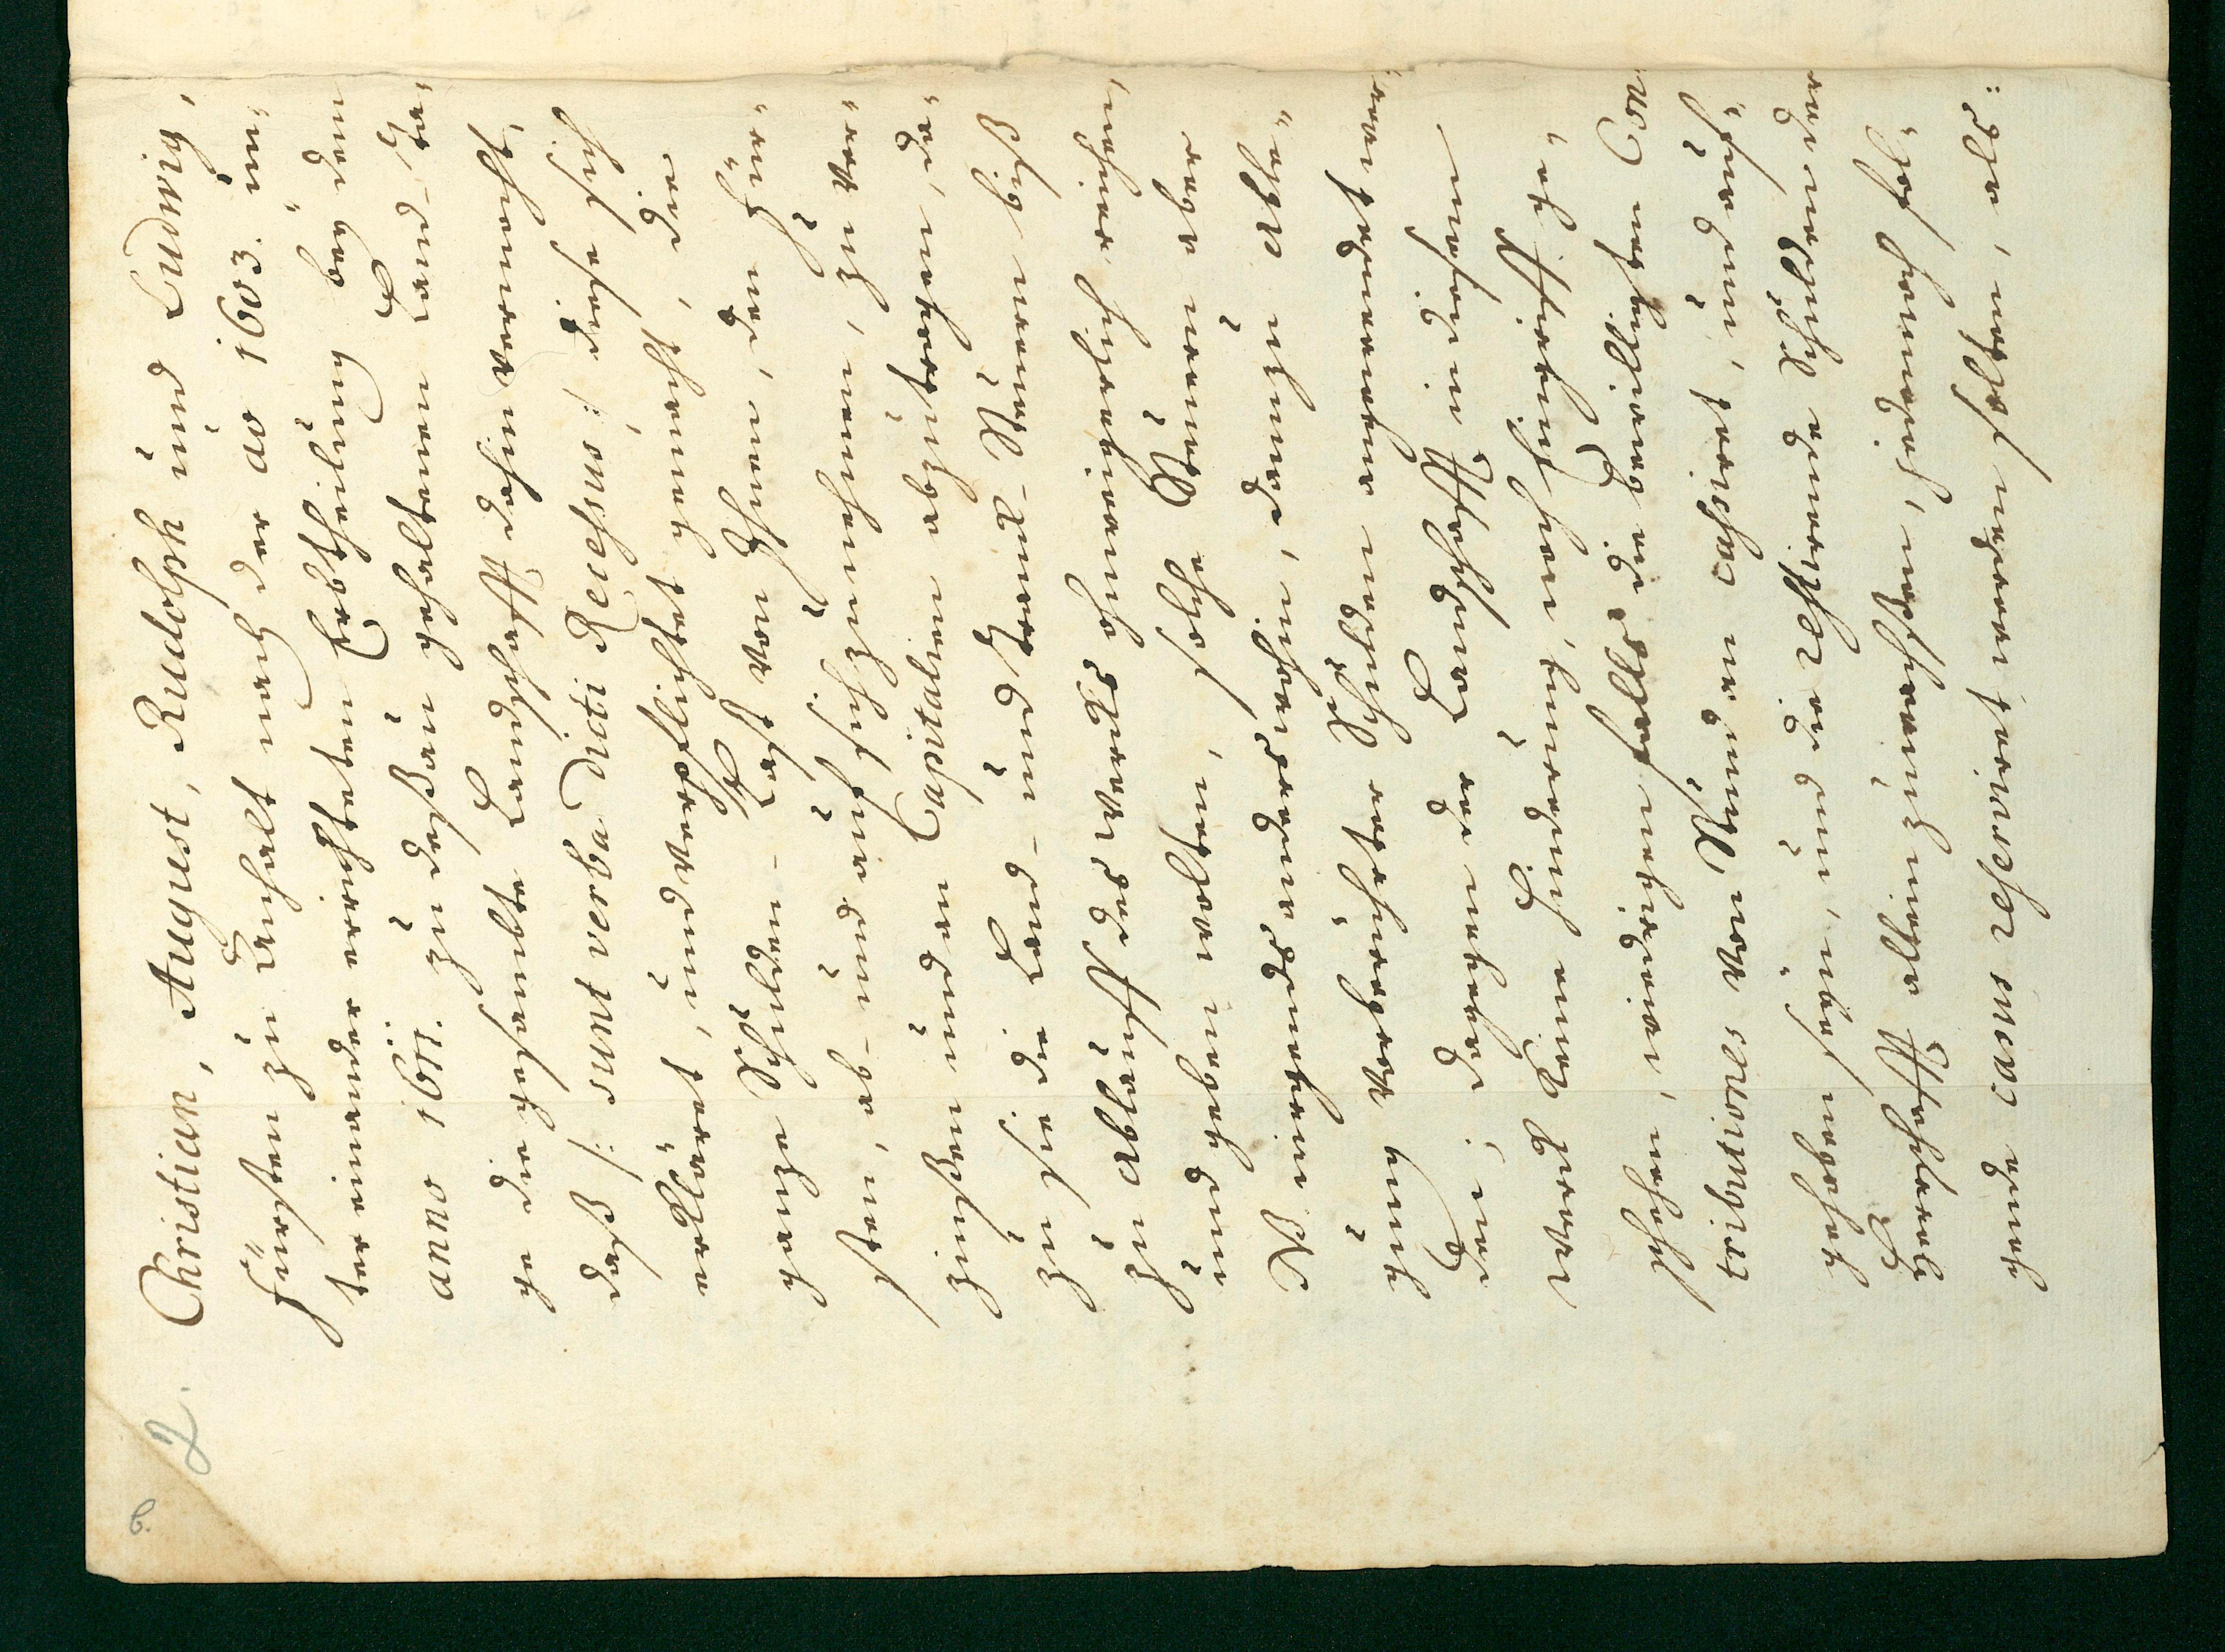 b.
2.
Christian, August, Rudolph und Ludwig,
Fürsten zu Anhalt nach der ao 1603. un„
ter einander errichteten Erbtheilung bey dem
anno 1611. zu Deßau gehaltenen Land-Ta„
ge die gesambte Landschafft dahin vermocht,
daß /: sunt verba dicti Recessus :/ diese sich
erkläret, und verpflichtet gemacht, die
ganze Schulden-Last von Ihnen, den Für„
sten, ab- und auf sich zu nehmen, zu ver„
zinsen und an Capitalien abzutragen, da„
zu sie die Land- und Tranck-Steuern biß
zu Ablaufft des Wercks ohnweigerlich reichen,
und geben wolten, solche Steuern aber
Nirgends anders wohin, dann zu Able„
gung verbriefeter Schulden angewendet wer„
den; dagegen der Landschafft in diesem
Werck keine Hinderung, noch Eingriff ge„
schehen, wiedrigen falls die bewilligten Con„
tributiones von Stund an cassiret, und auf„
gehoben seyn, und die restirende Schulden der
Herrschafft allein zuwachsen, jedennoch fol„
gende casus reserviret werden solten, als: